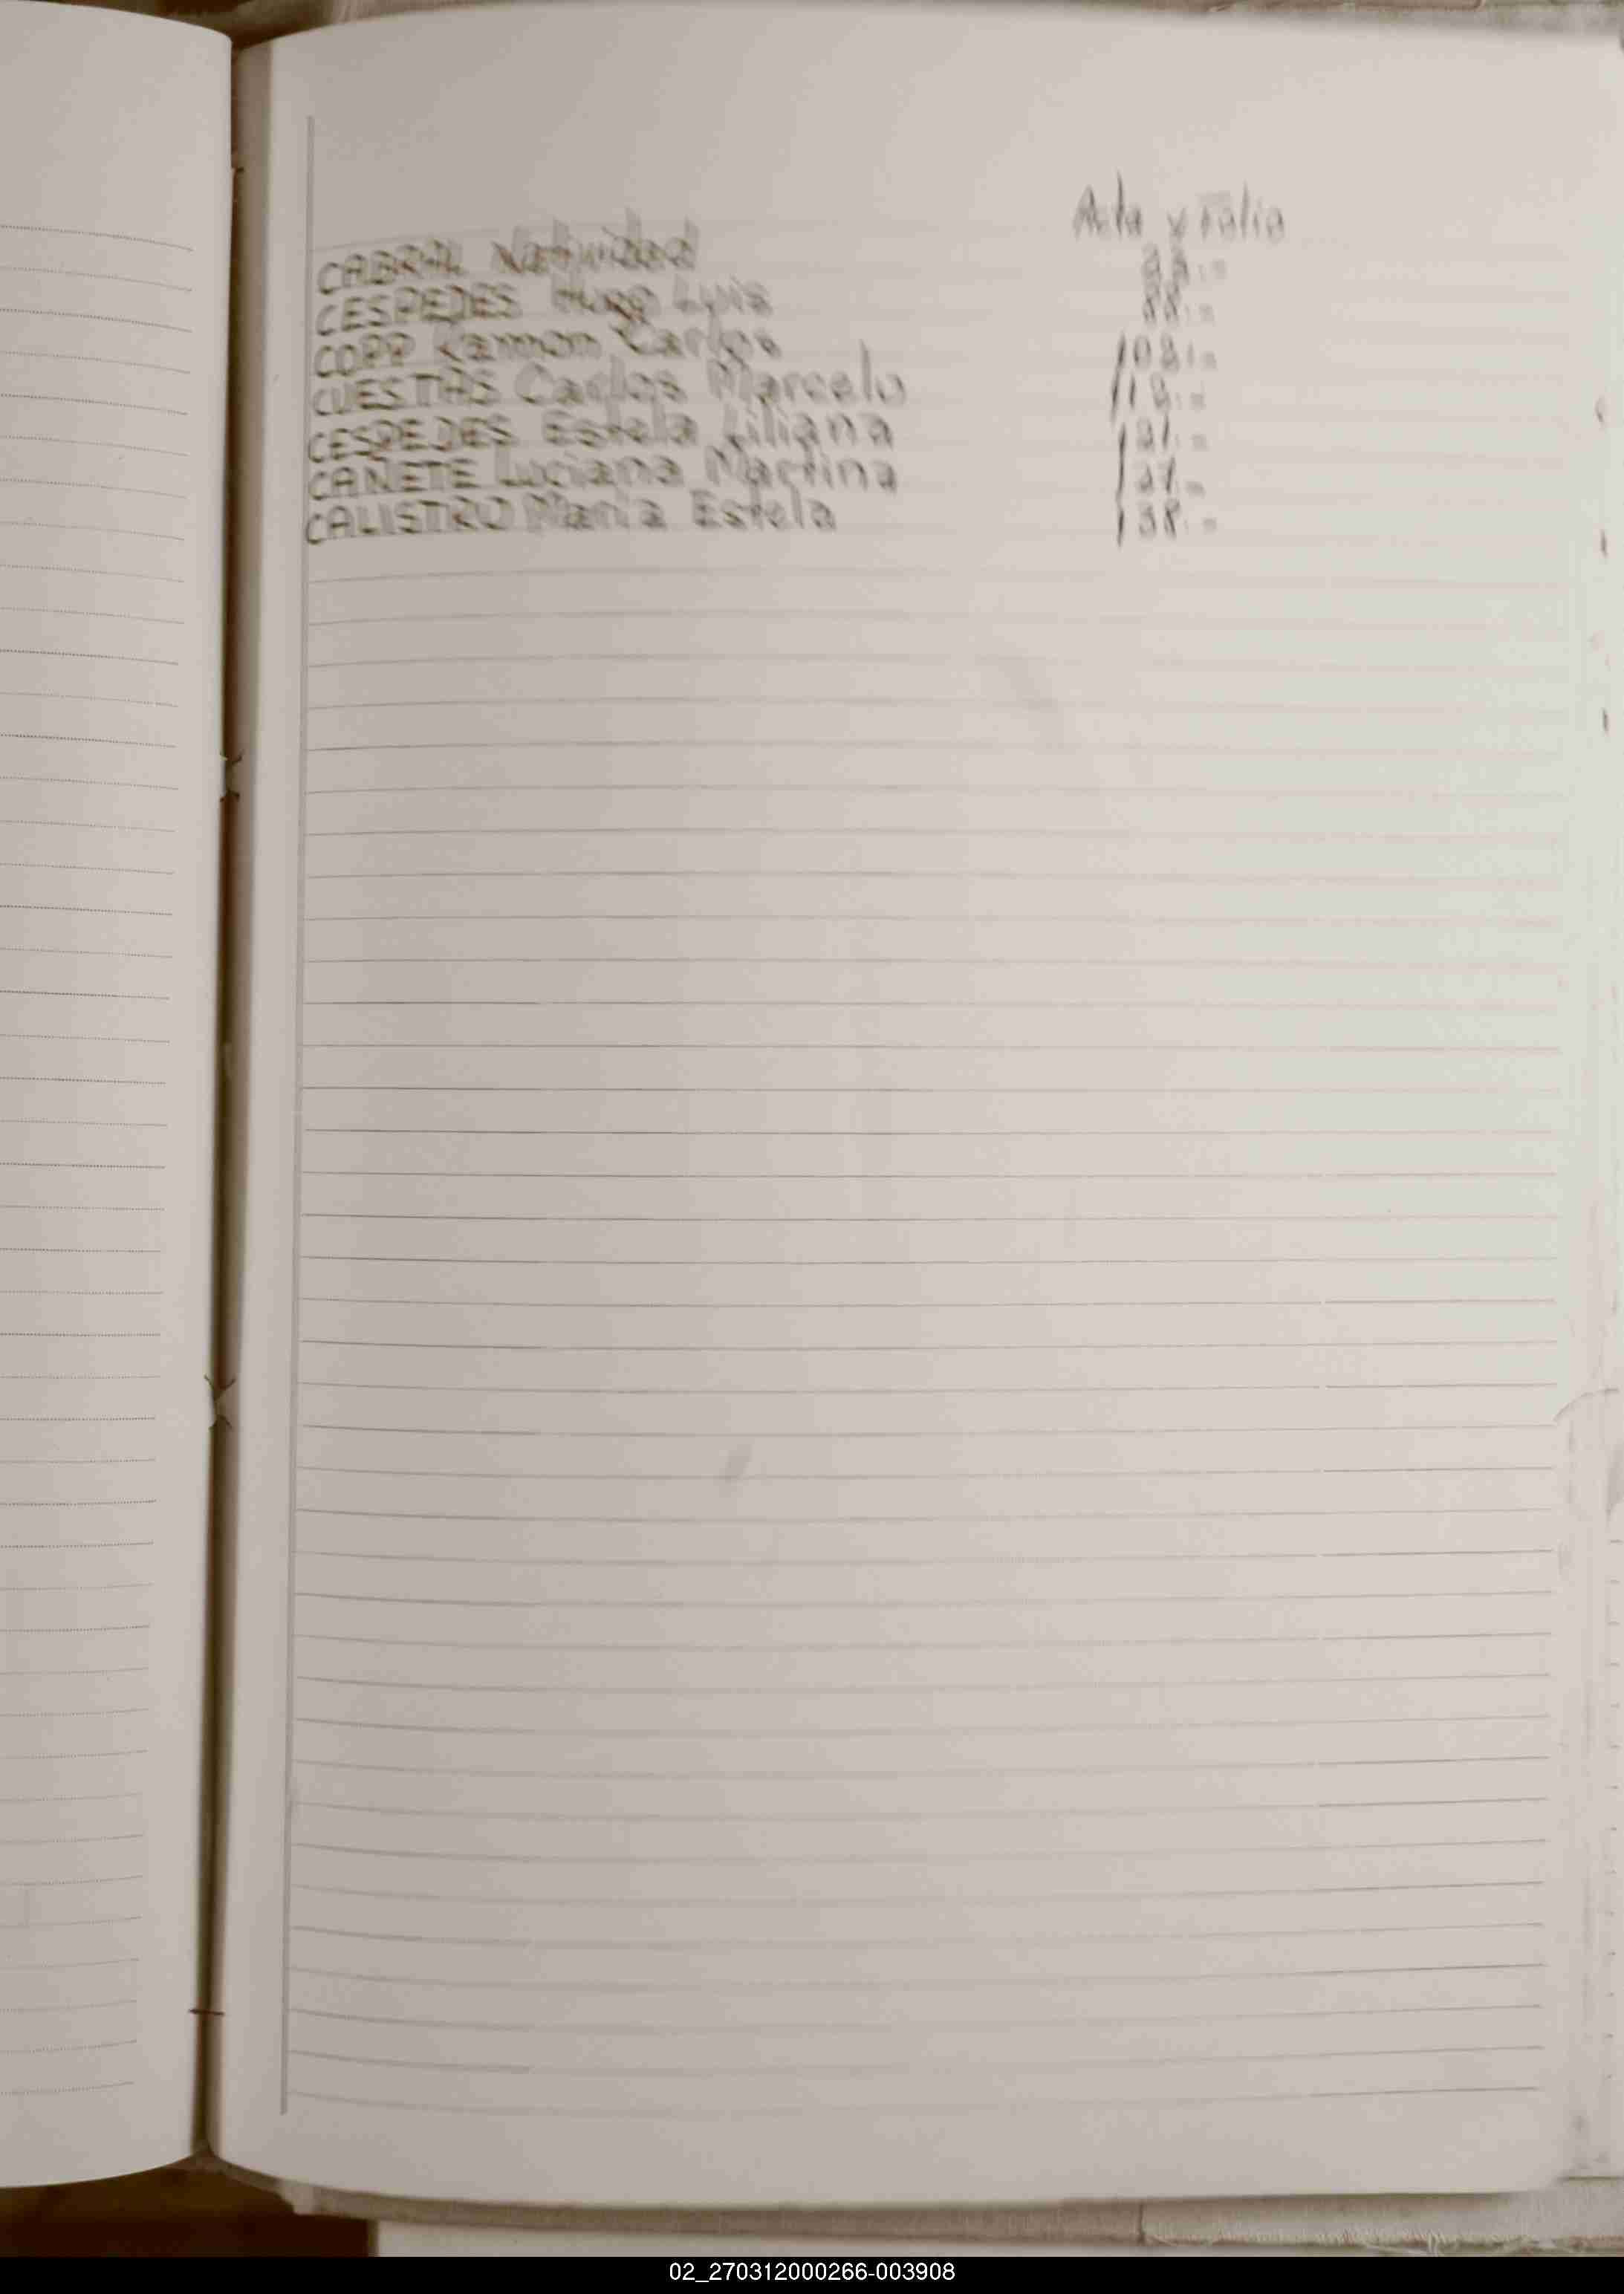 Acta y Folio
CABRAL Natividad
CESPEDES Hugo Luis 88.=
COPP Ramon Carlos 108.=
CUESTAS Carlos Marcelo 118.=
CESPEDES Estela Liliana
CAÑETE Luciana Martina
CALISTRO Maria Estela 138.=
02_270312000266-003908